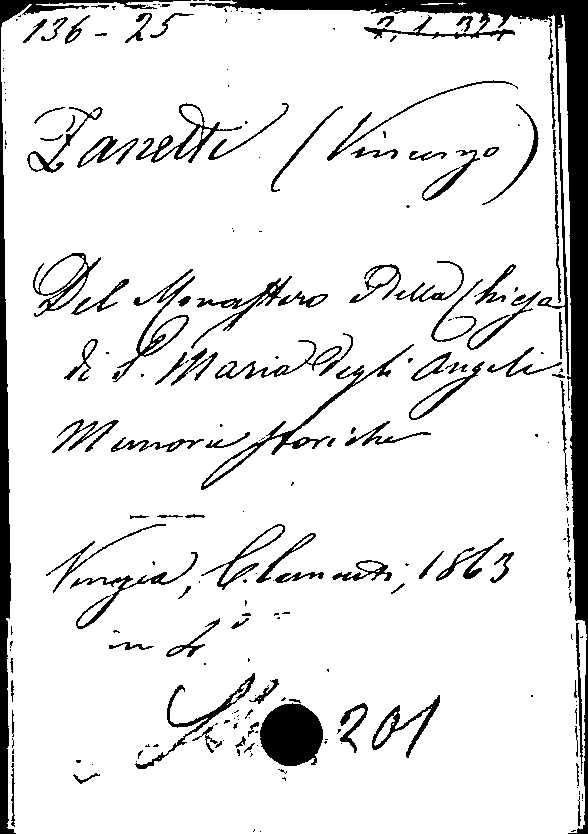 136-25 2.1.321
Zanetti (Vincenzo)
Del Monastero Della Chiesa
di S. Maria Degli Angeli-
Memorie storiche
Venezia, Clementi, 1863
in 4°
201